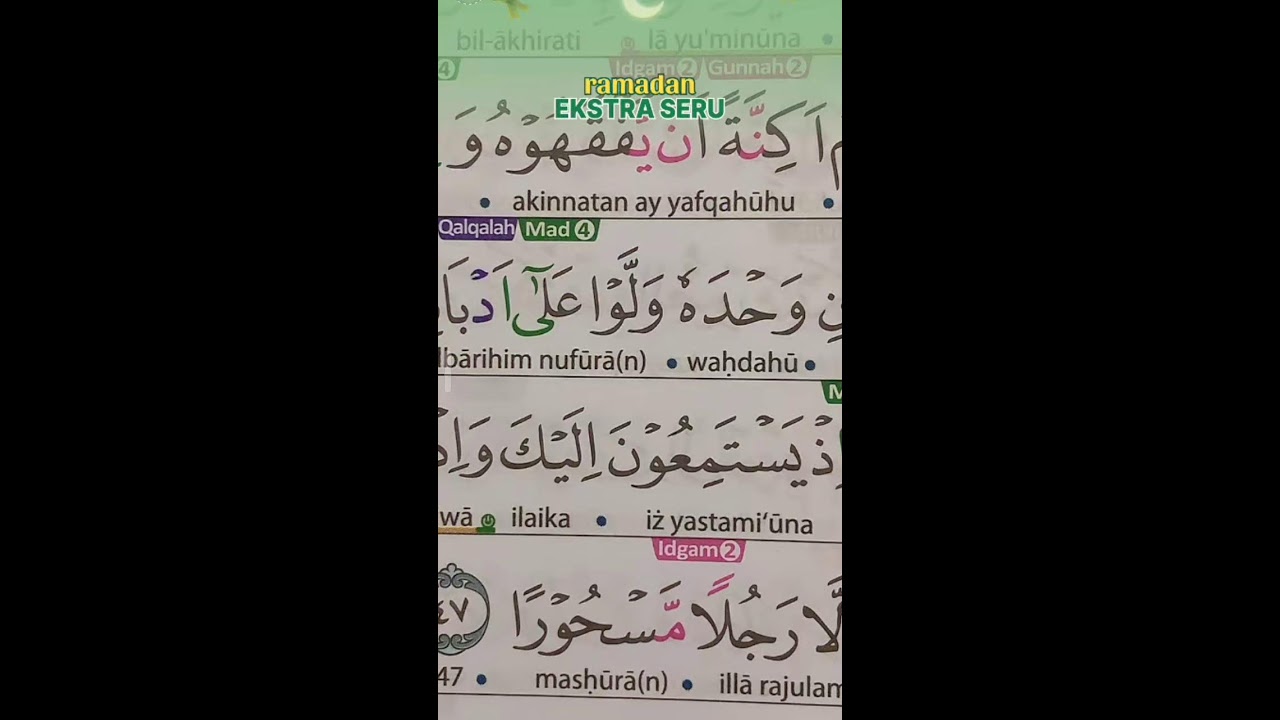 bil-ākhirati lā yu'minūna
4 Idgam 2 Gunnah 2
ramadan
EKSTRA SERU
اَكِنَّةً اَنْ يَّفْقَهُوْهُ وَ
akinnatan ay yafqahūhu
Qalqalah Mad 4
وَحْدَهٗ وَلَّوْا عَلٰٓى اَدْبَا
bārihim nufūrā(n) waḥdahū
اِذْ يَسْتَمِعُوْنَ اِلَيْكَ وَاِذْ
wā ilaika iż yastami‘ūna
Idgam 2
لَّا رَجُلًا مَّسْحُوْرًا ٤٧
47 masḥūrā(n) illā rajulam